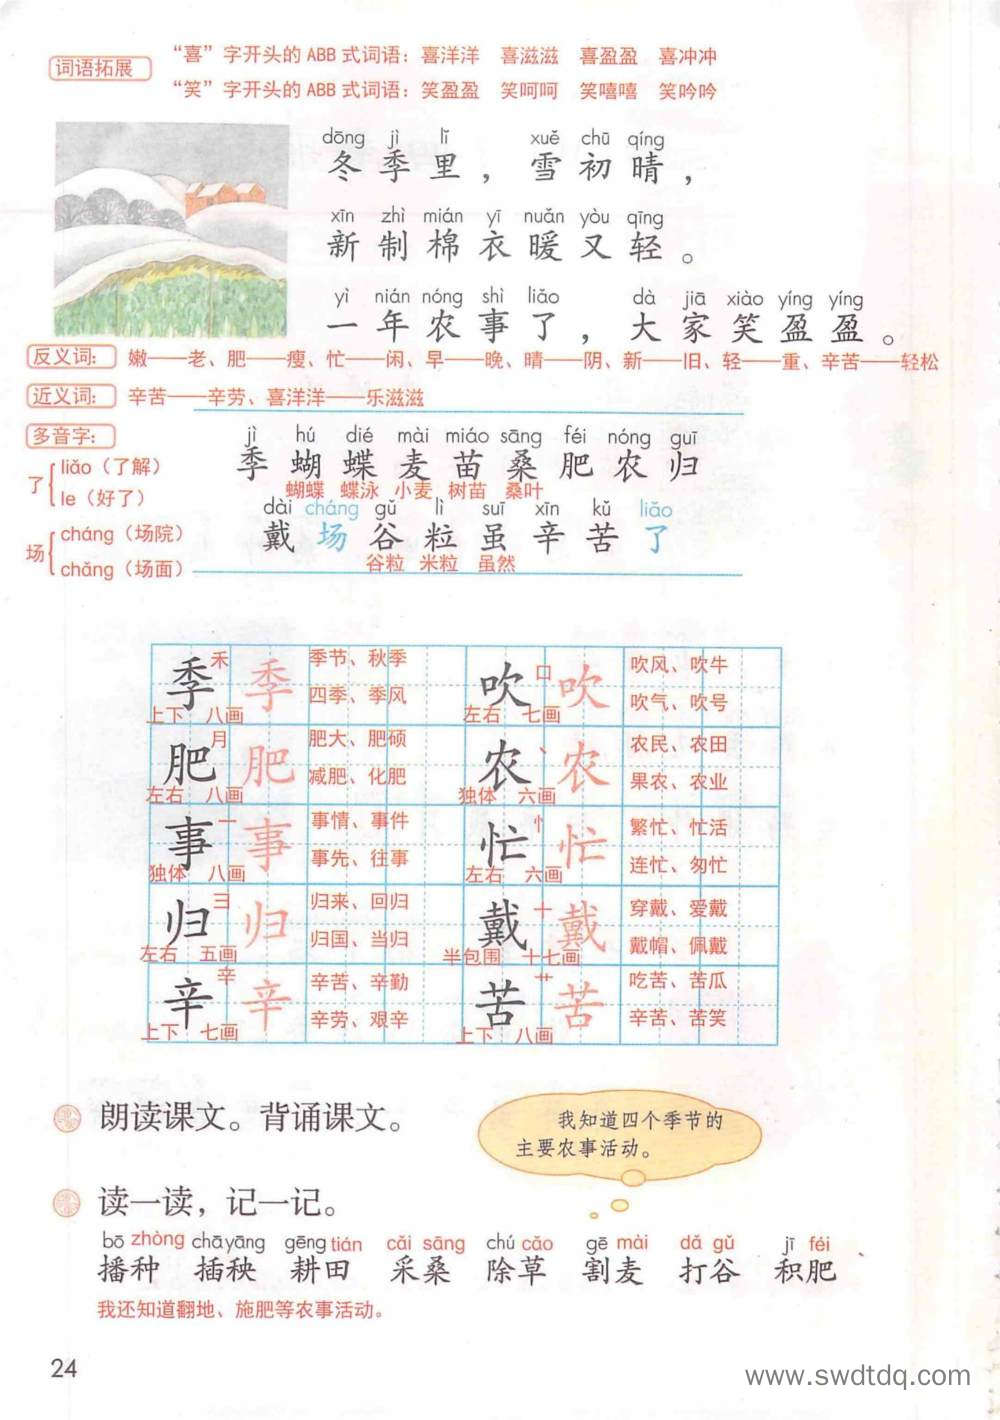 词语拓展
“喜”字开头的 ABB 式词语：喜洋洋 喜滋滋 喜盈盈 喜冲冲
“笑”字开头的 ABB 式词语：笑盈盈 笑呵呵 笑嘻嘻 笑吟吟
dōng jì lǐ xuě chū qíng
冬季里，雪初晴，
xīn zhì mián yī nuǎn yòu qīng
新制棉衣暖又轻。
yì nián nóng shì liǎo dà jiā xiào yíng yíng
一年农事了，大家笑盈盈。
反义词： 嫩——老、肥——瘦、忙——闲、早——晚、晴——阴、新——旧、轻——重、辛苦——轻松
近义词： 辛苦——辛劳、喜洋洋——乐滋滋
多音字：
了 liǎo（了解）
le（好了）
场 cháng（场院）
chǎng（场面）
jì hú dié mài miáo sāng féi nóng guī
季 蝴 蝶 麦 苗 桑 肥 农 归
蝴蝶 蝶泳 小麦 树苗 桑叶
dài cháng gǔ lì suī xīn kǔ liǎo
戴 场 谷 粒 虽 辛 苦 了
谷粒 米粒 虽然
季 禾 季 季节、秋季
四季、季风
上下 八画
吹 口 吹 吹风、吹牛
吹气、吹号
左右 七画
肥 月 肥 肥大、肥硕
减肥、化肥
左右 八画
农 丶 农 农民、农田
果农、农业
独体 六画
事 一 事 事情、事件
事先、往事
独体 八画
忙 忄 忙 繁忙、忙活
连忙、匆忙
左右 六画
归 彐 归 归来、回归
归国、当归
左右 五画
戴 十 戴 穿戴、爱戴
戴帽、佩戴
半包围 十七画
辛 辛 辛 辛苦、辛勤
辛劳、艰辛
上下 七画
苦 艹 苦 吃苦、苦瓜
辛苦、苦笑
上下 八画
朗读课文。背诵课文。
我知道四个季节的
主要农事活动。
读一读，记一记。
bō zhòng chā yāng gēng tián cǎi sāng chú cǎo gē mài dǎ gǔ jī féi
播种 插秧 耕田 采桑 除草 割麦 打谷 积肥
我还知道翻地、施肥等农事活动。
24
www.swdtdq.com